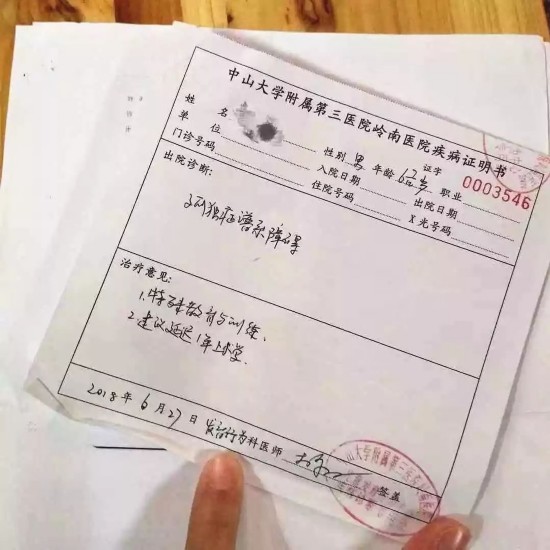 中山大学附属第三医院岭南医院疾病证明书
证字
0003546
姓名 性别 男 年龄 6岁 职业
单位 入院日期 出院日期
门诊号码 住院号码 X光号码
出院诊断:
孤独症谱系障碍
治疗意见:
1.特殊教育与训练、
2.建议延迟1年上小学.
2018年6月27日 发育行为科医师 签盖